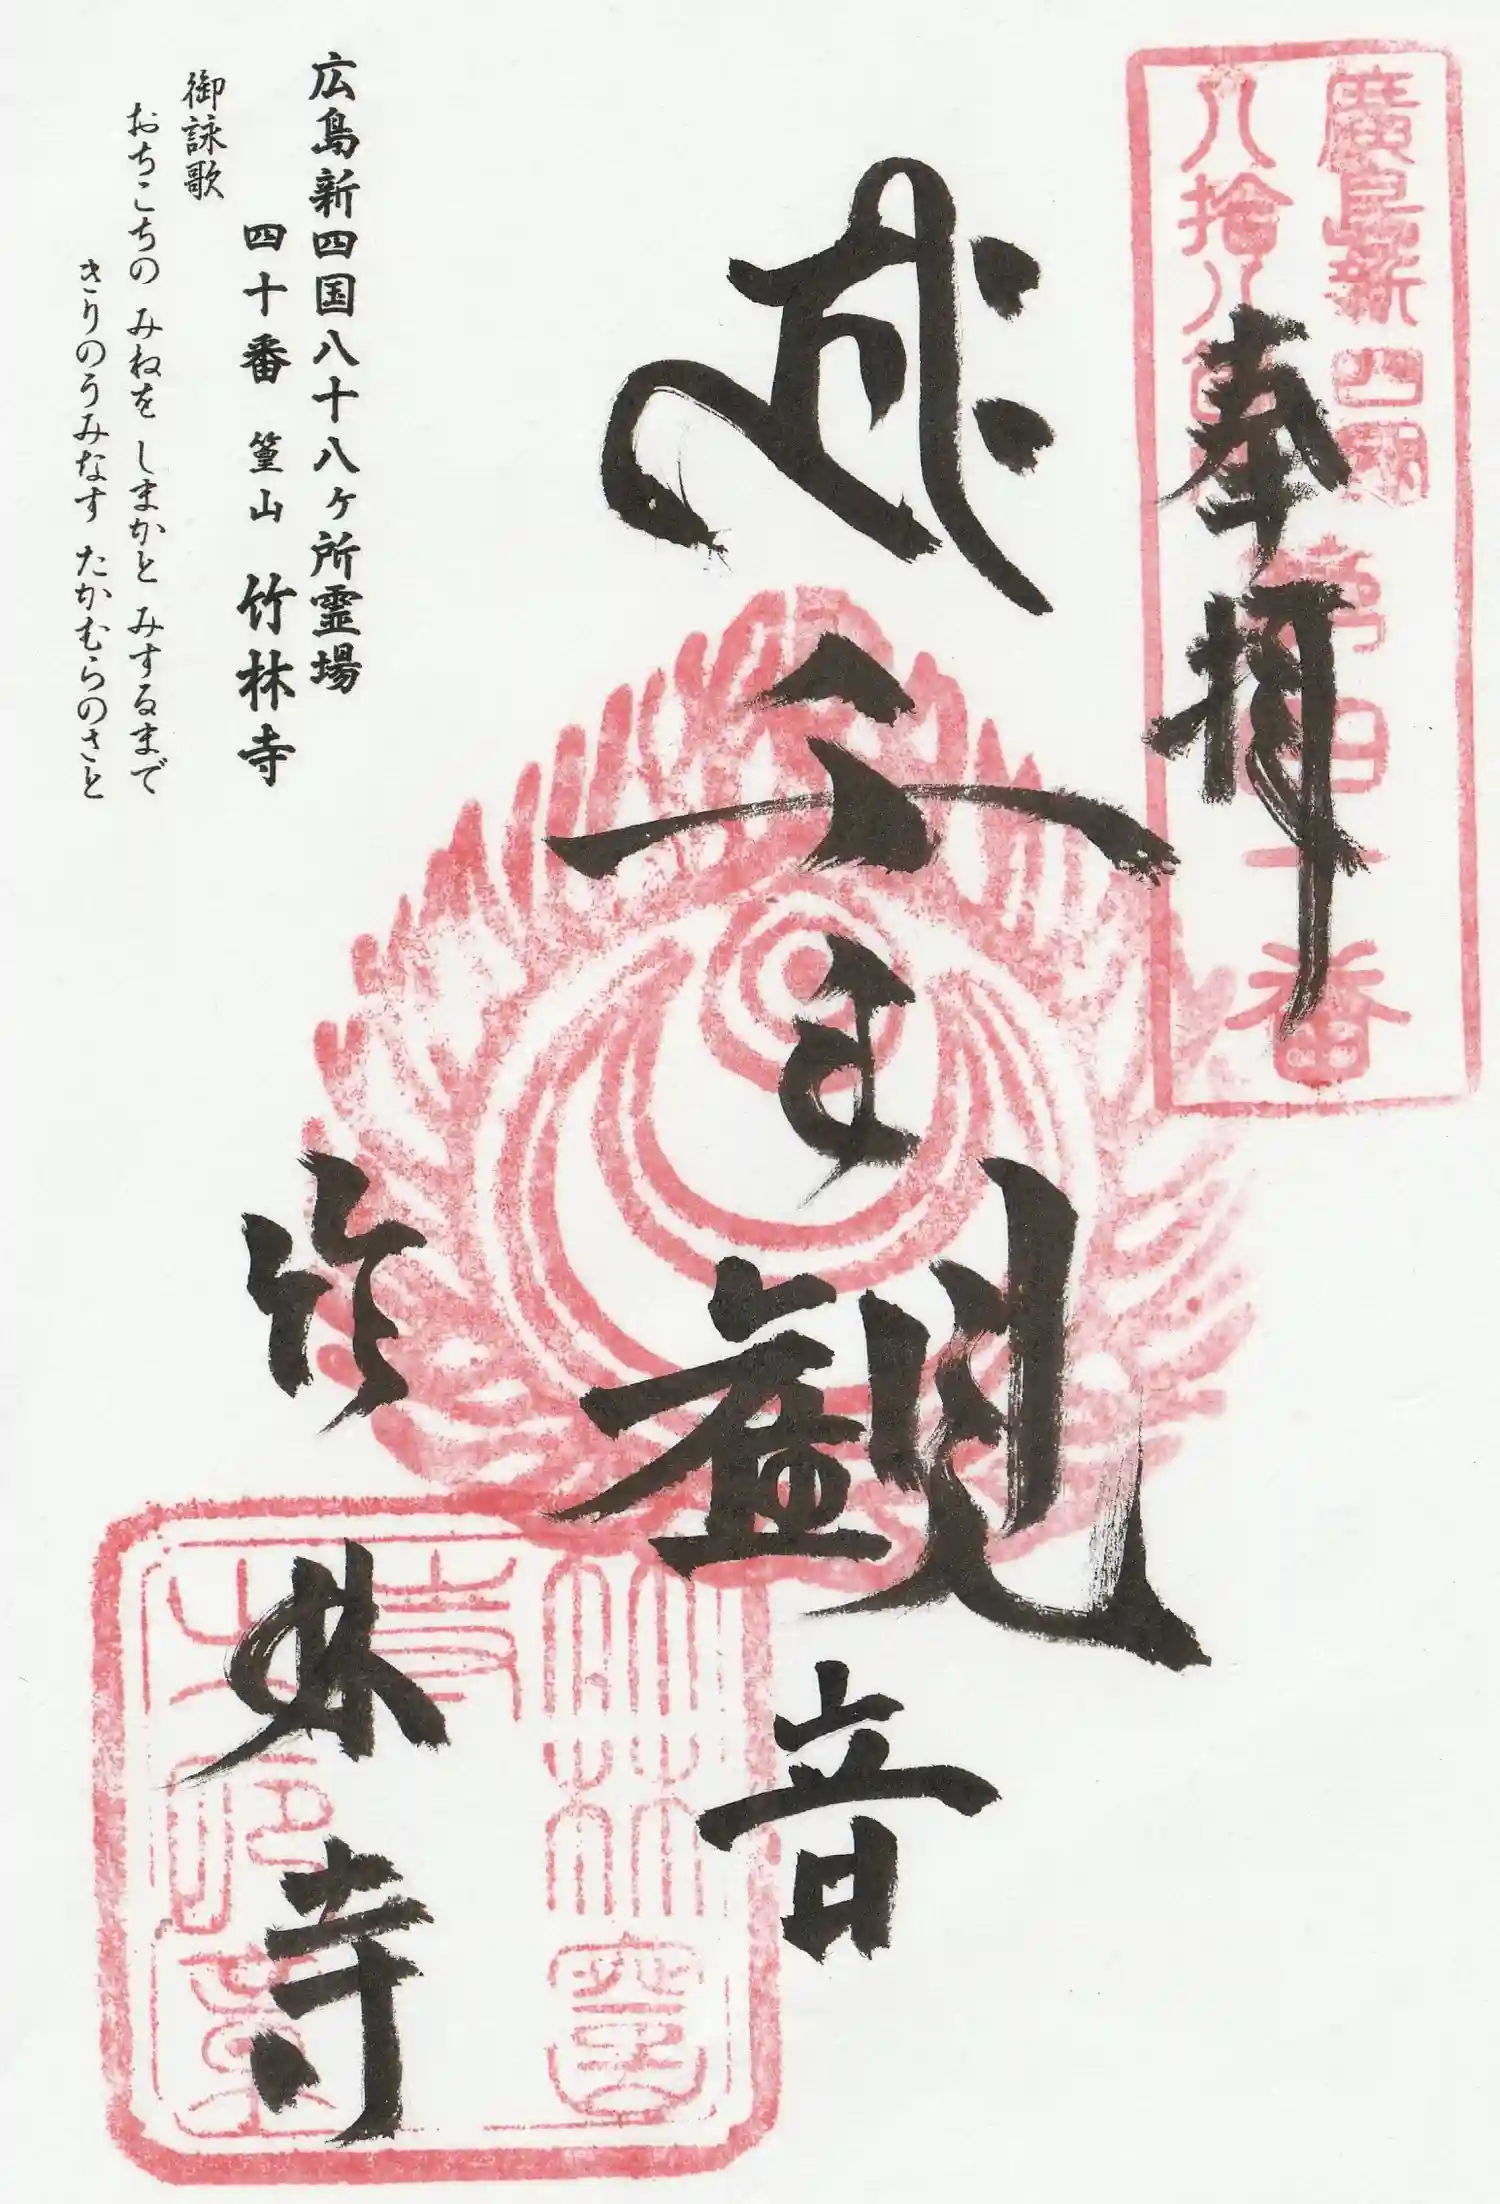 廣島新四國
八拾八
第四十番
奉拝
千手観音
竹林寺
広島新四国八十八ヶ所霊場
四十番 篁山 竹林寺
御詠歌
おちこちの みねを しまかと みするまで
きりのうみなす たかむらのさと